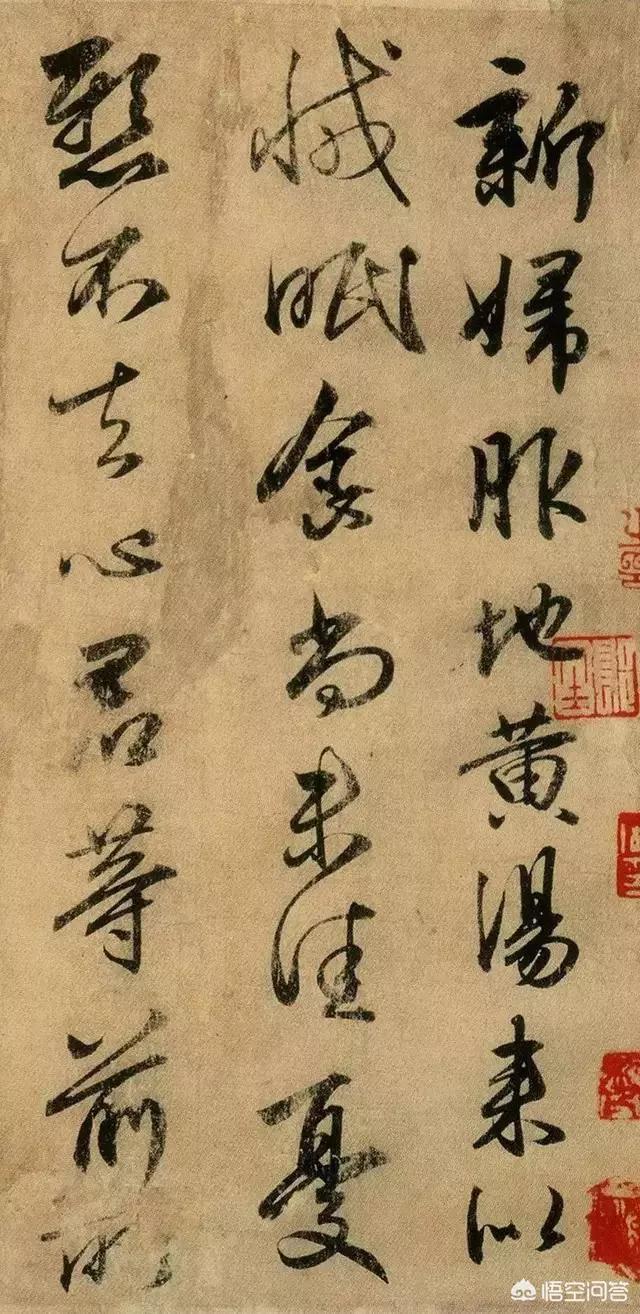 新婦服地黄湯来似
減眠食尚未佳憂
懸不去心君等前所
悟空问答